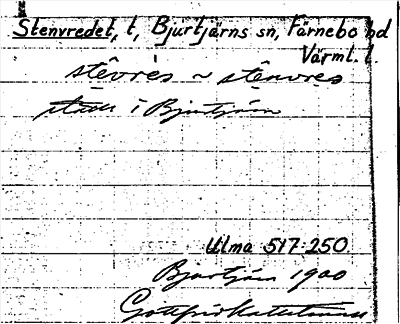 Stenvredet, t, Bjurtjärns sn, Färnebo hd
Värml. l.
stêvrès ~ stênvres
i Bjurtjärn
Ulma 517:250
Bjurtjärn 1900
Gottfrid Kallstenius